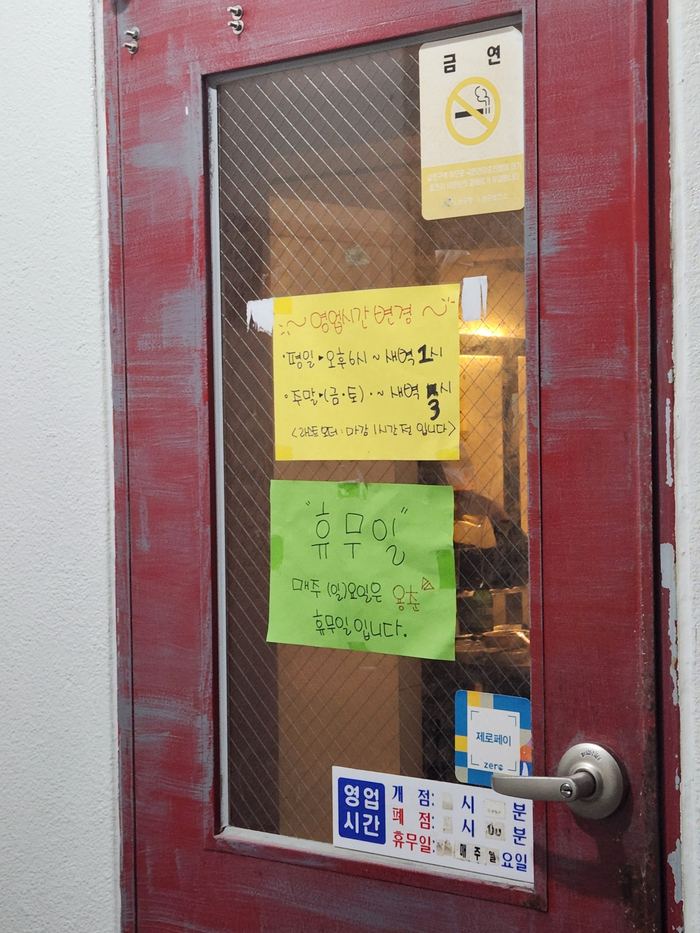 금 연
~ 영업시간 변경 ~
• 평일 ▸ 오후 6시 ~ 새벽 1시
• 주말 ▸ (금·토) · ~ 새벽 3시
<라스트 오더 : 마감 1시간 전 입니다>
"휴무일"
매주 (일)요일은 용춘
휴무일입니다.
제로페이
zero
영업시간
개 점: 시 분
폐 점: 시 00 분
휴무일: 매 주 일 요일